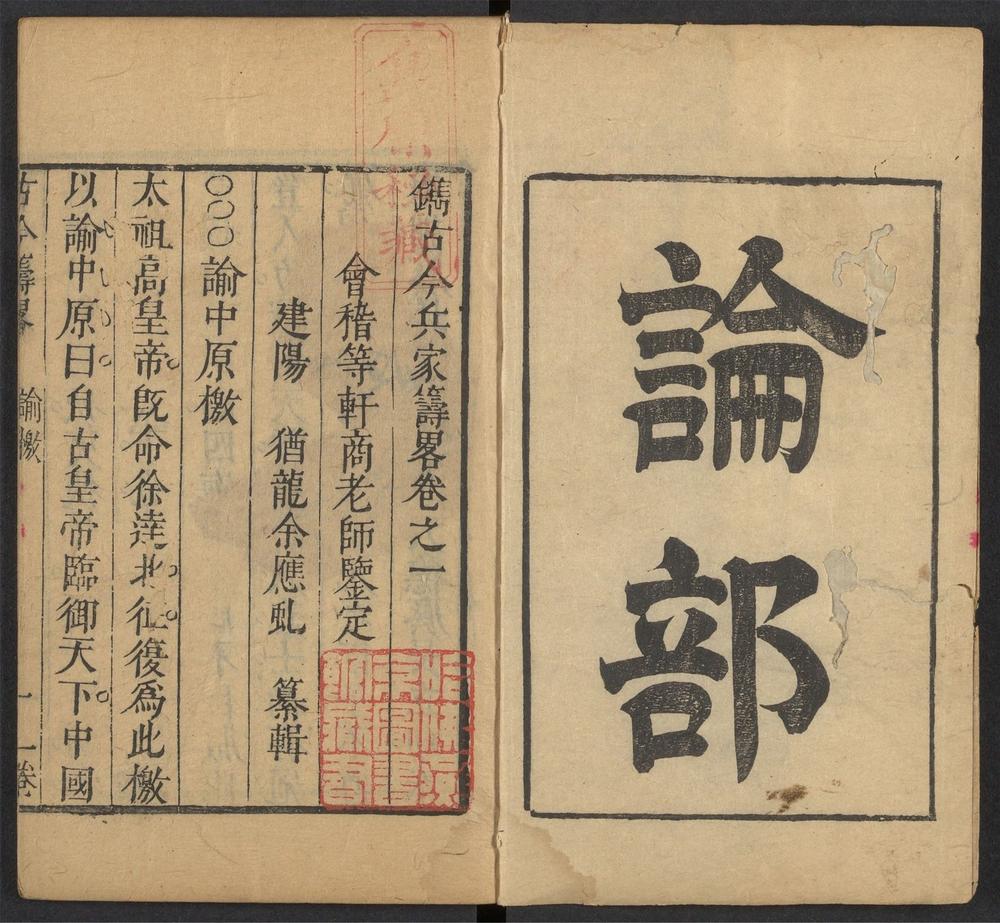 論部
鐫古今兵家籌畧卷之一
會稽等軒商老師鑒定
建陽 猶龍余應虬 纂輯
○○○諭中原檄
太祖高皇帝旣命徐達北征復爲此檄
以諭中原曰自古皇帝臨御天下中國
古今籌畧 諭檄 一 一卷